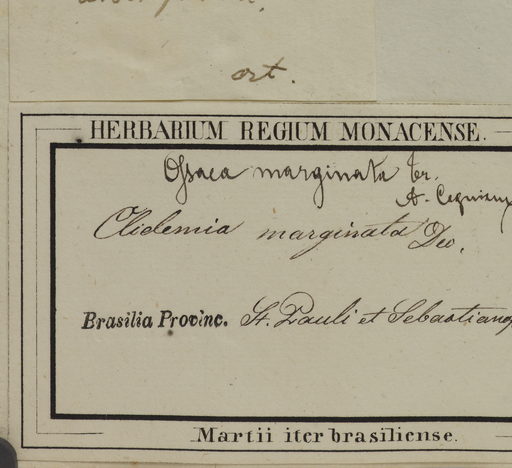 ort.
HERBARIUM REGIUM MONACENSE.
Ossaea marginata Tr.
A. Cogniaux
Clidemia marginata Dec.
Brasilia Provinc. St. Pauli et Sebastianop
Martii iter brasiliense.